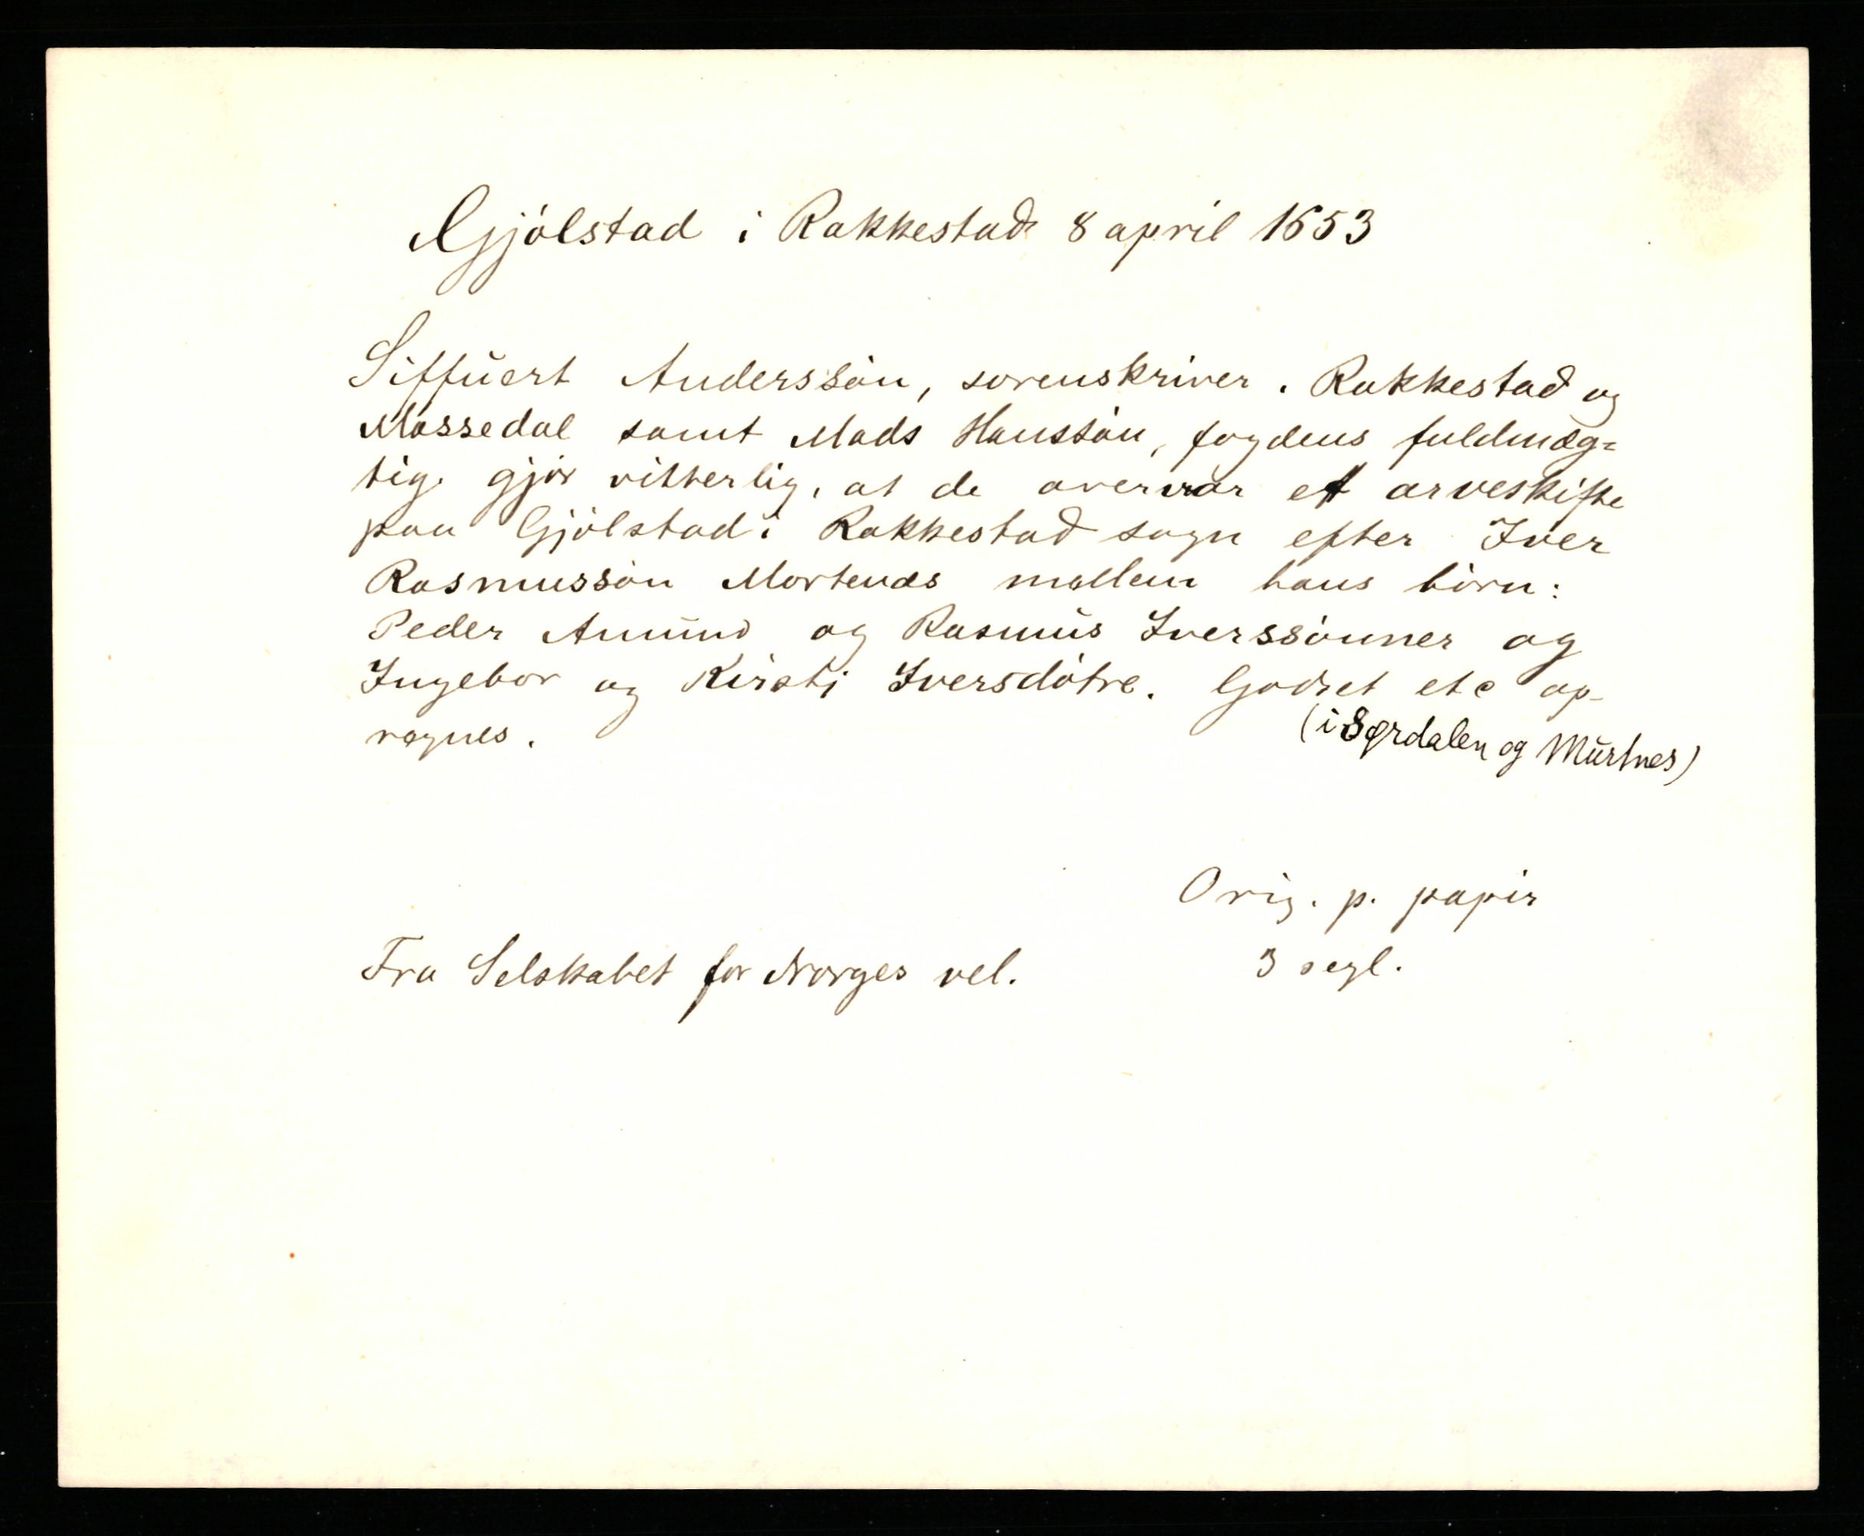 Gjölstad i Rakkestad 8 april 1653
Siffuert Anderssön, sorenskriver i Rakkestad og
Mossedal samt Mads Hanssön, fogdens fuldmæg=
tig. gjör vitterlig, at de overvar et arveskifte
paa Gjölstad i Rakkestad sogn efter Iver
Rasmussön mellem hans börn:
Peder Amund og Rasmus Iverssönner og
Ingebor og Kirsti Iversdötre. Godset etc op-
regnes.
(i Sørdalen og Murtnes)
Orig. p. papir
Fra Selskabet for Norges vel.
3 segl.